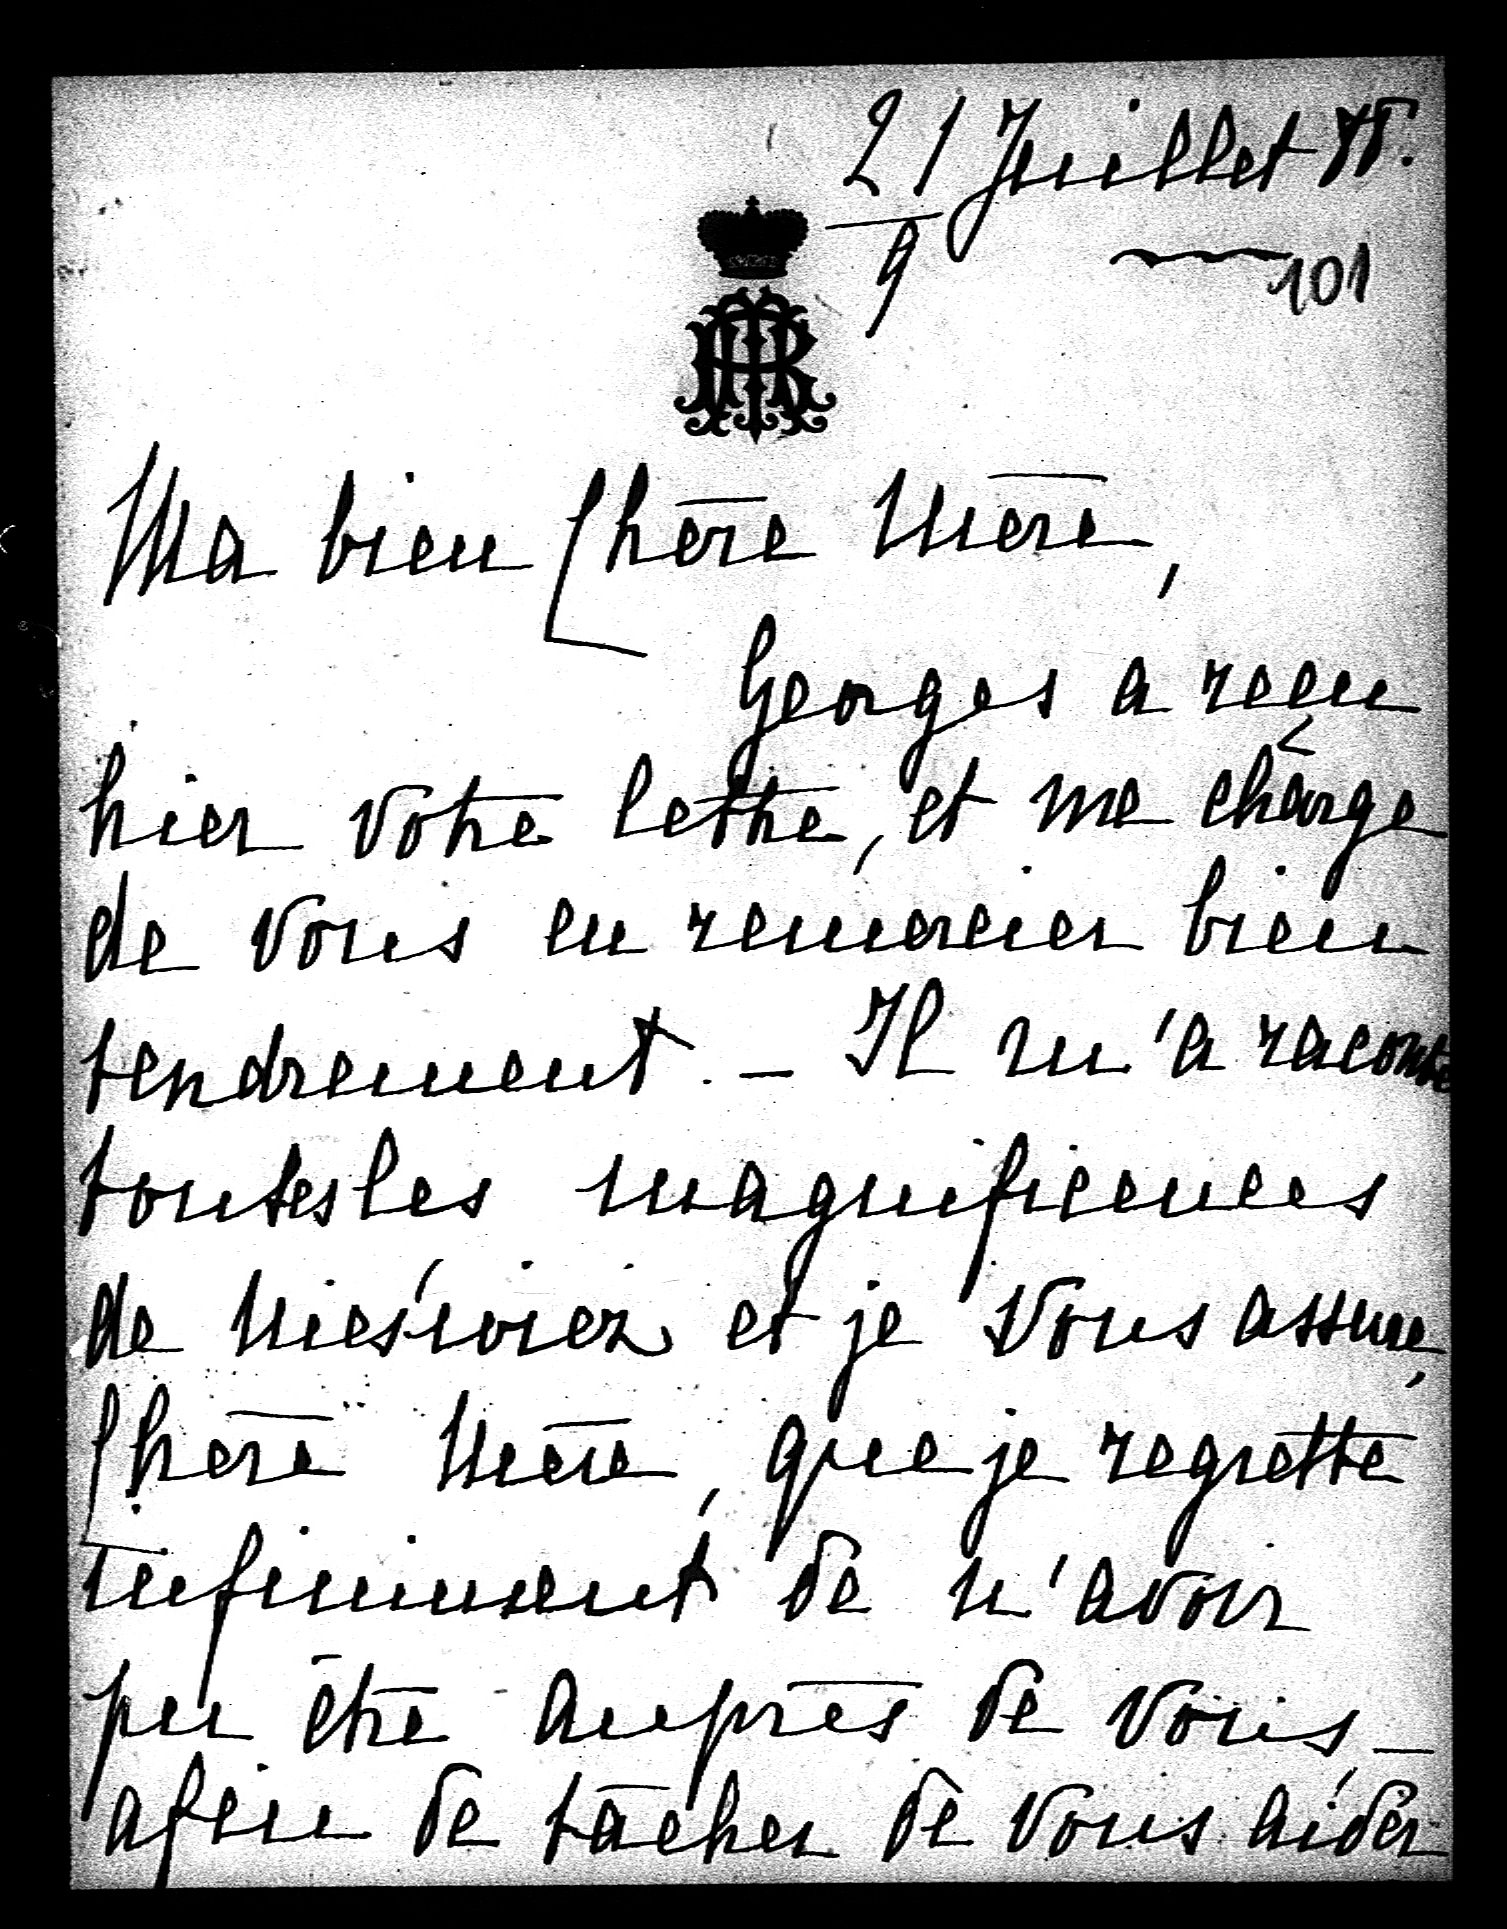 21 Juillet 88.
9
101
Ma bien Chère Mère,
Georges a reçu
hier votre lettre, et me charge
de vous en remercier bien
tendrement. – Il m'a raconté
toutes les magnificences
de Nieświez et je vous assure,
Chère Mère, que je regrette
infiniment de n'avoir
pu être auprès de vous –
afin de tâcher de vous aider